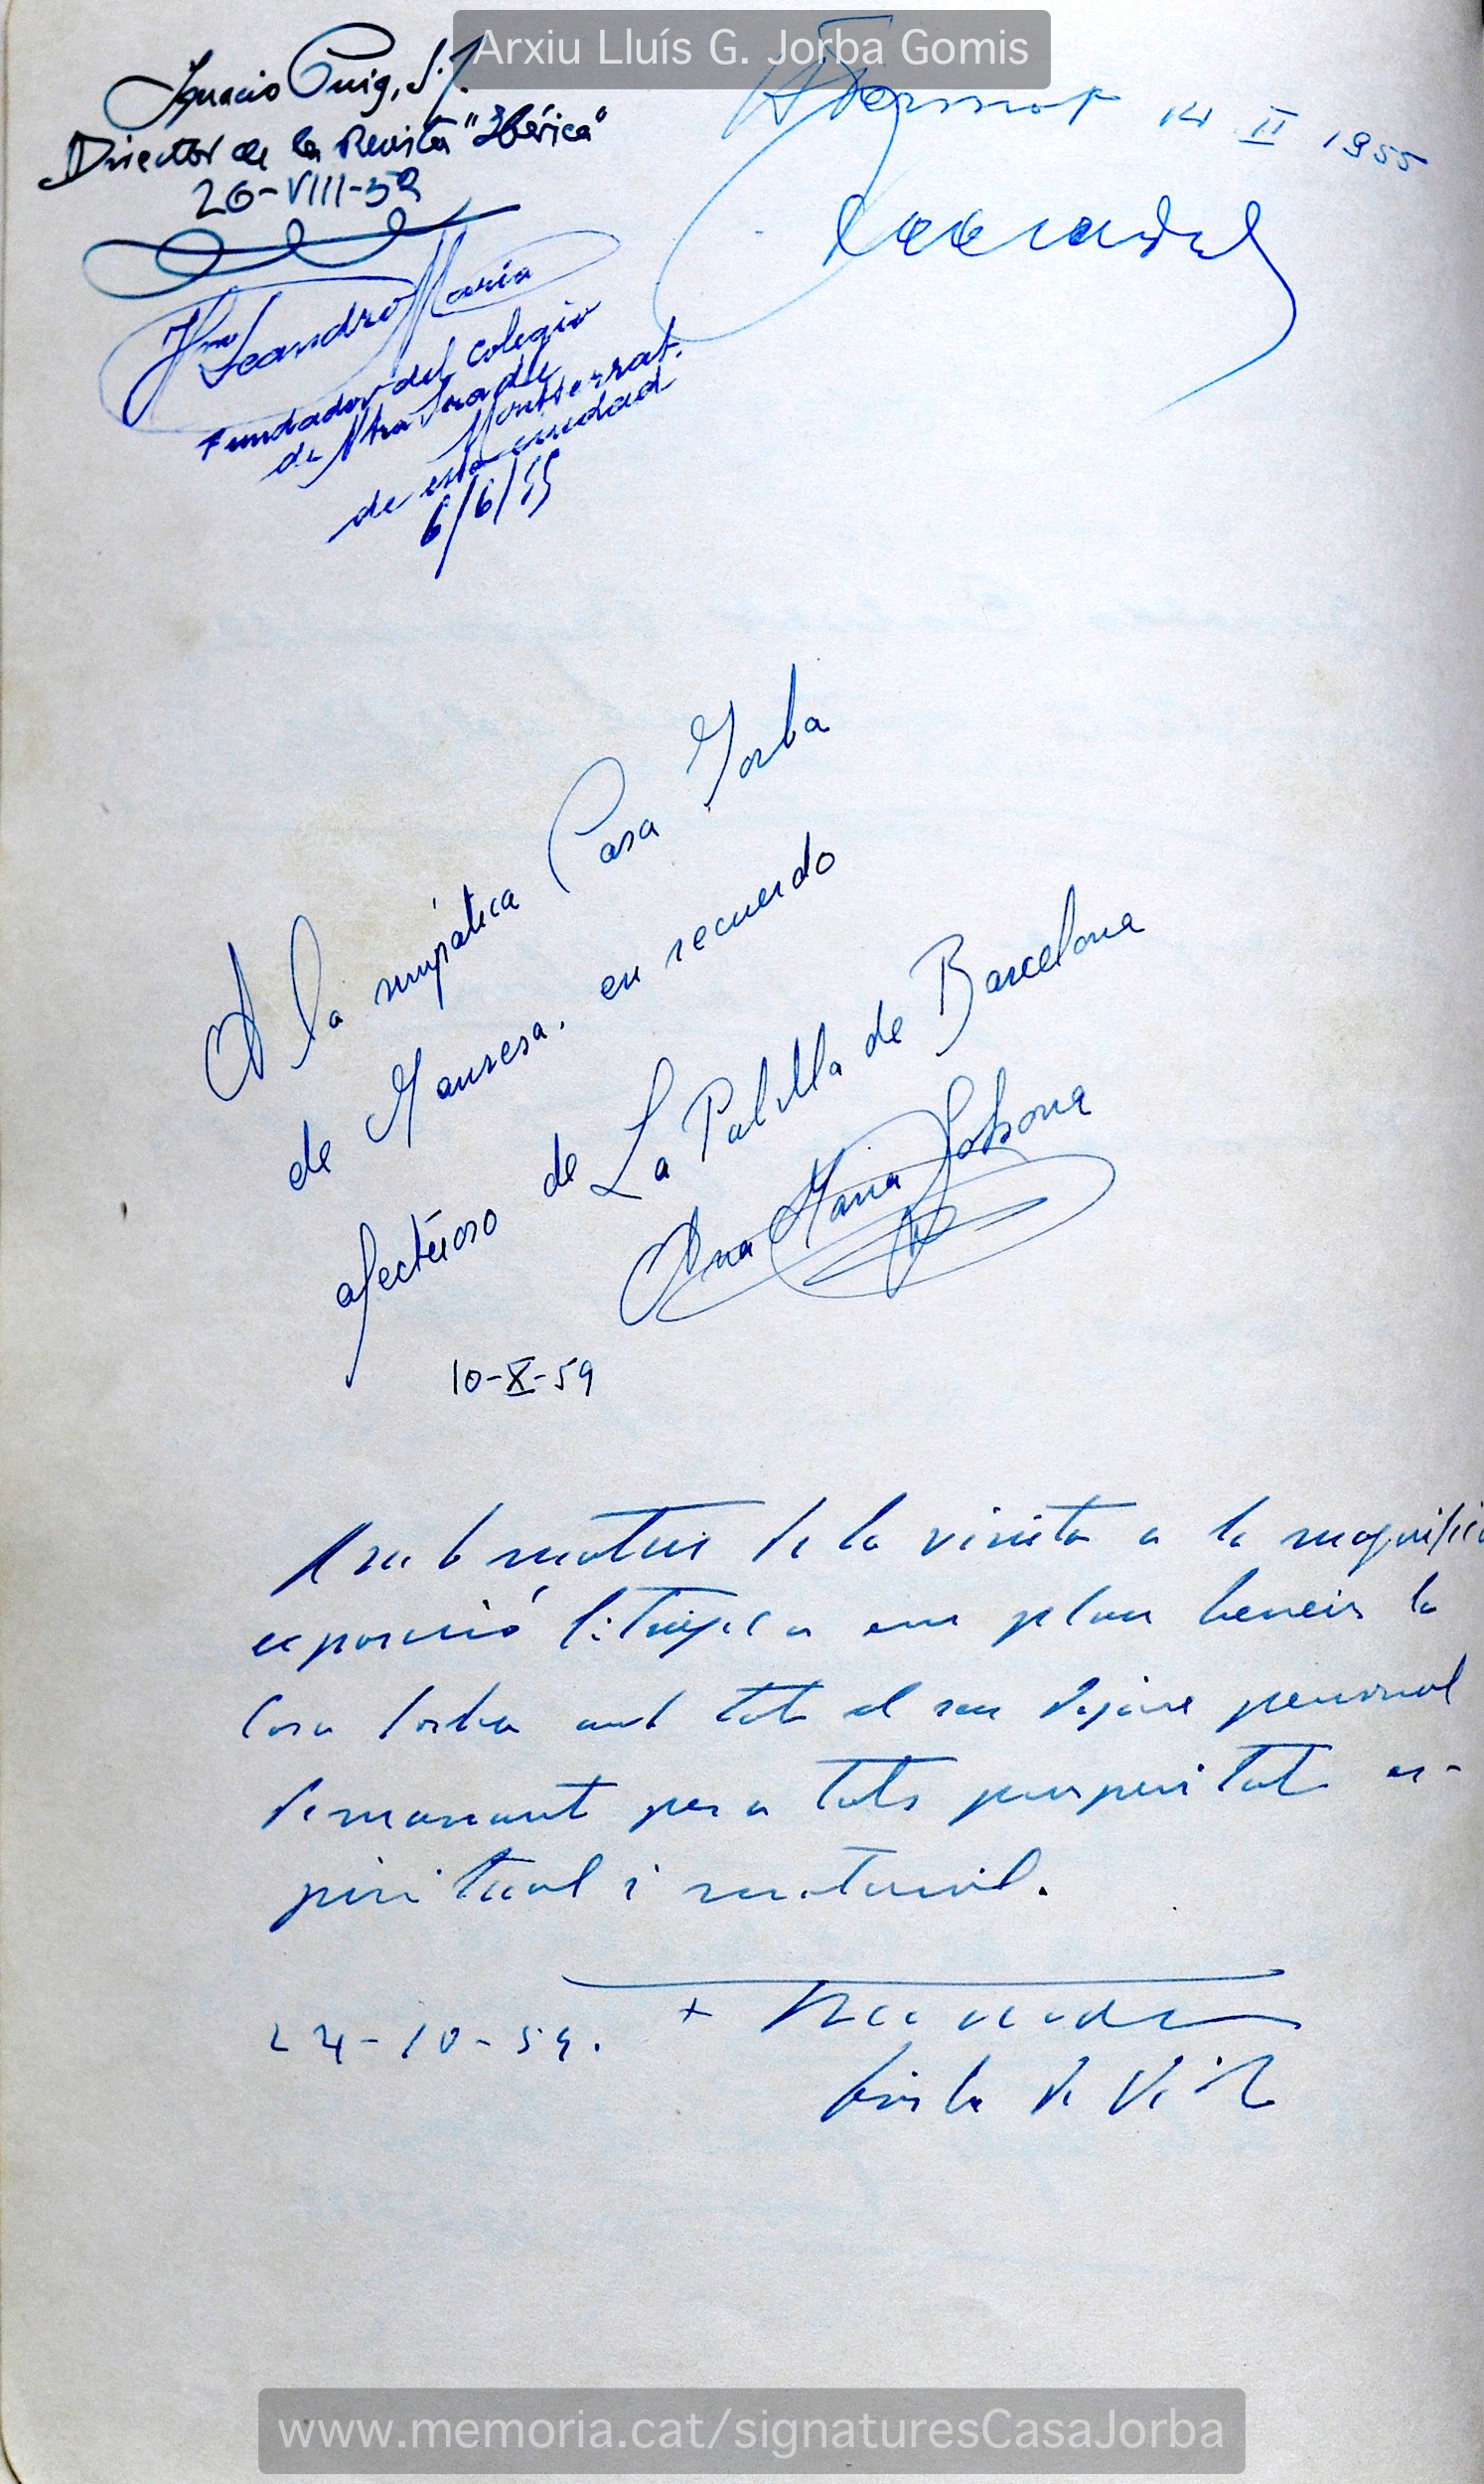 Arxiu Lluís G. Jorba Gomis
Ignacio Puig, S.J.
Director de la Revista "Ibérica"
26-VIII-52
14 II 1955
Hno Leandro María
Fundador del Colegio
de Ntra Sra de
Montserrat.
de esta ciudad
6/6/55
A la simpática Casa Jorba
de Manresa, en recuerdo
afectuoso de La Pubilla de Barcelona
Ana Maria Solsona
10-X-59
Amb motiu de la visita a la magnífica
exposició litúrgica em plau beneir la
Casa Jorba amb tot el seu personal
demanant per a tots prosperitat es-
piritual i material.
24-10-59. +
bisbe de Vic
www.memoria.cat/signaturesCasaJorba